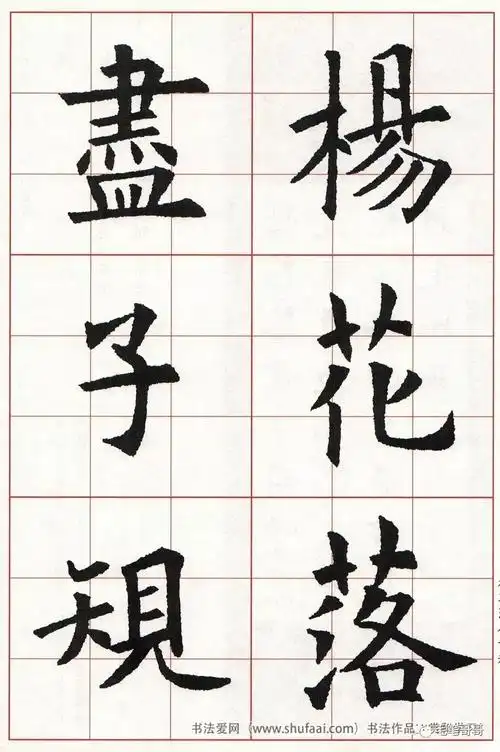 楊花落
盡子䂓
书法爱网（www.shufaai.com）书法作品